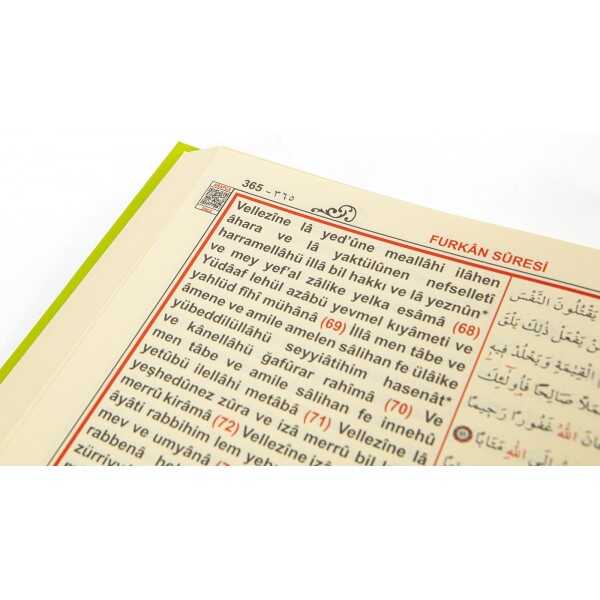 365 - ٣٦٥
FURKÂN SÛRESİ
Vellezîne lâ yed'ûne meallâhi ilâhen
âhara ve lâ yaktülûnen nefselletî
harramellâhü illâ bil hakkı ve lâ yeznûn*
ve mey yef'al zâlike yelka esâmâ (68)
Yüdâaf lehül azâbü yevmel kıyâmeti ve
yahlüd fîhî mühânâ (69) İllâ men tâbe ve
âmene ve amile amelen sâlihan fe ülâike
yübeddilüllâhü seyyiâtihim hasenât*
ve kânellâhü ğafûrar rahîmâ (70) Ve
men tâbe ve amile sâlihan fe innehû
yetûbü ilellâhi metâbâ (71) Vellezîne lâ
yeşhedûnez zûra ve izâ merrû bil
merrû kirâmâ (72) Vellezîne izâ
âyâti rabbihim lem
mev ve umyânâ
rabbenâ
يَقْتُلُونَ النَّفْسَ
يَفْعَلْ ذٰلِكَ يَلْقَ
الْقِيٰمَةِ وَيَخْلُدْ فِيهِ
صَالِحًا فَاُولٰٓئِكَ
اللّٰهُ غَفُورًا رَحِيمًا
اِلَى اللّٰهِ مَتَابًا